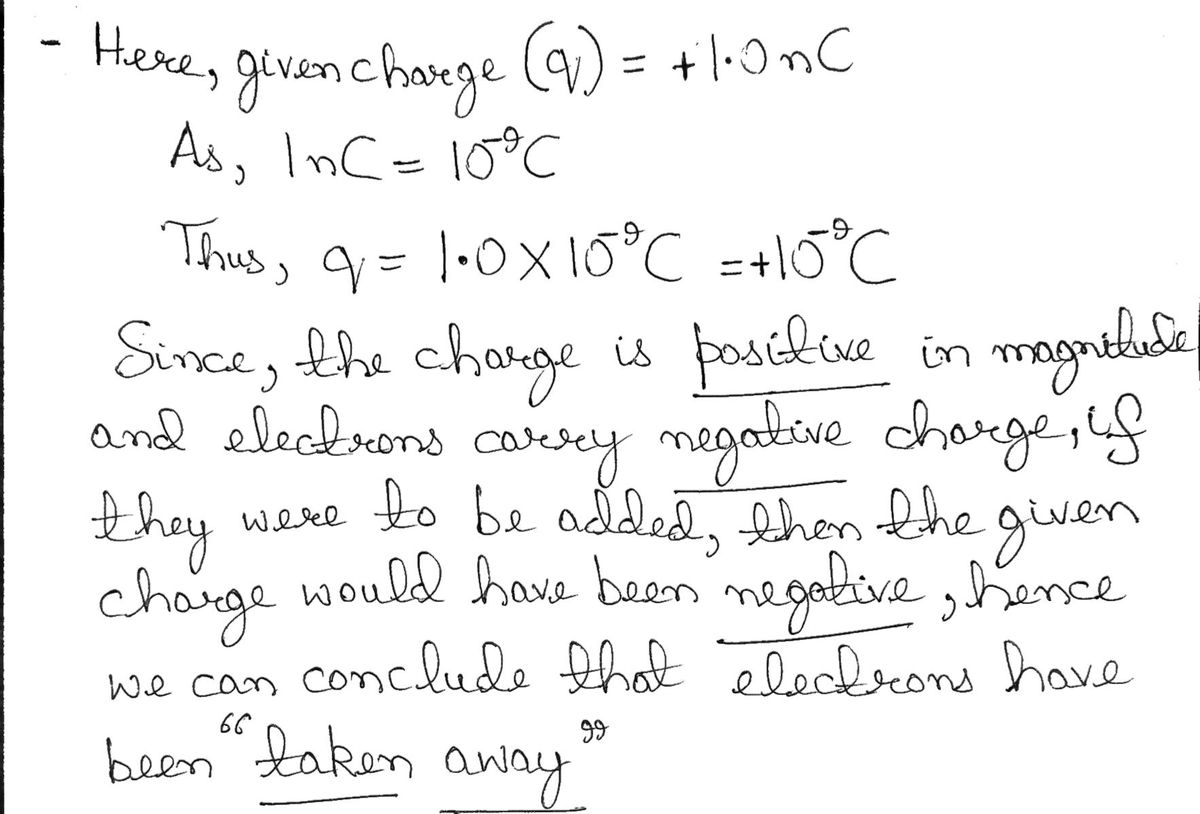 - Here, given charge (q) = +1.0nC
As, 1nC = 10⁻⁹C
Thus, q = 1.0 X 10⁻⁹C = +10⁻⁹C
Since, the charge is positive in magnitude
and electrons carry negative charge, if
they were to be added, then the given
charge would have been negative, hence
we can conclude that electrons have
been "taken away"